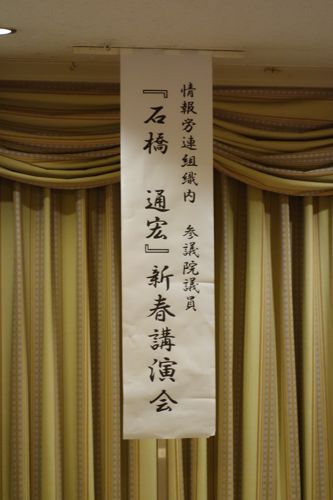 情報労連組織内 参議院議員
『石橋 通宏』新春講演会